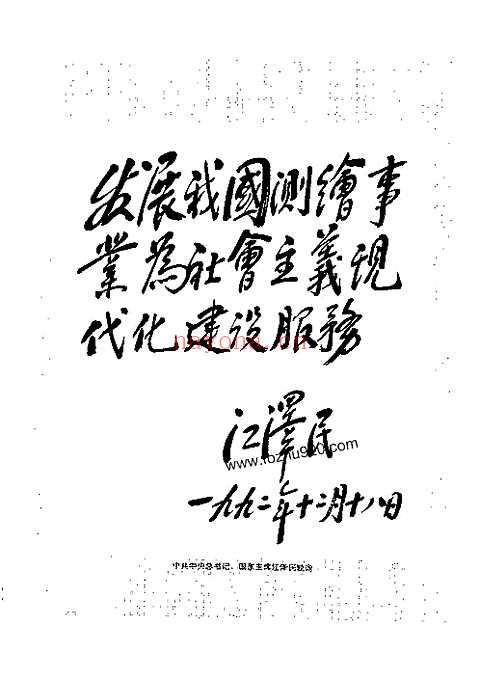 发展我國测繪事
業為社會主義现
代化建设服務
nayona.cn
江澤民
www.tozhu920.com
一九九二年十二月十八日
中共中央总书记、国家主席江泽民题词